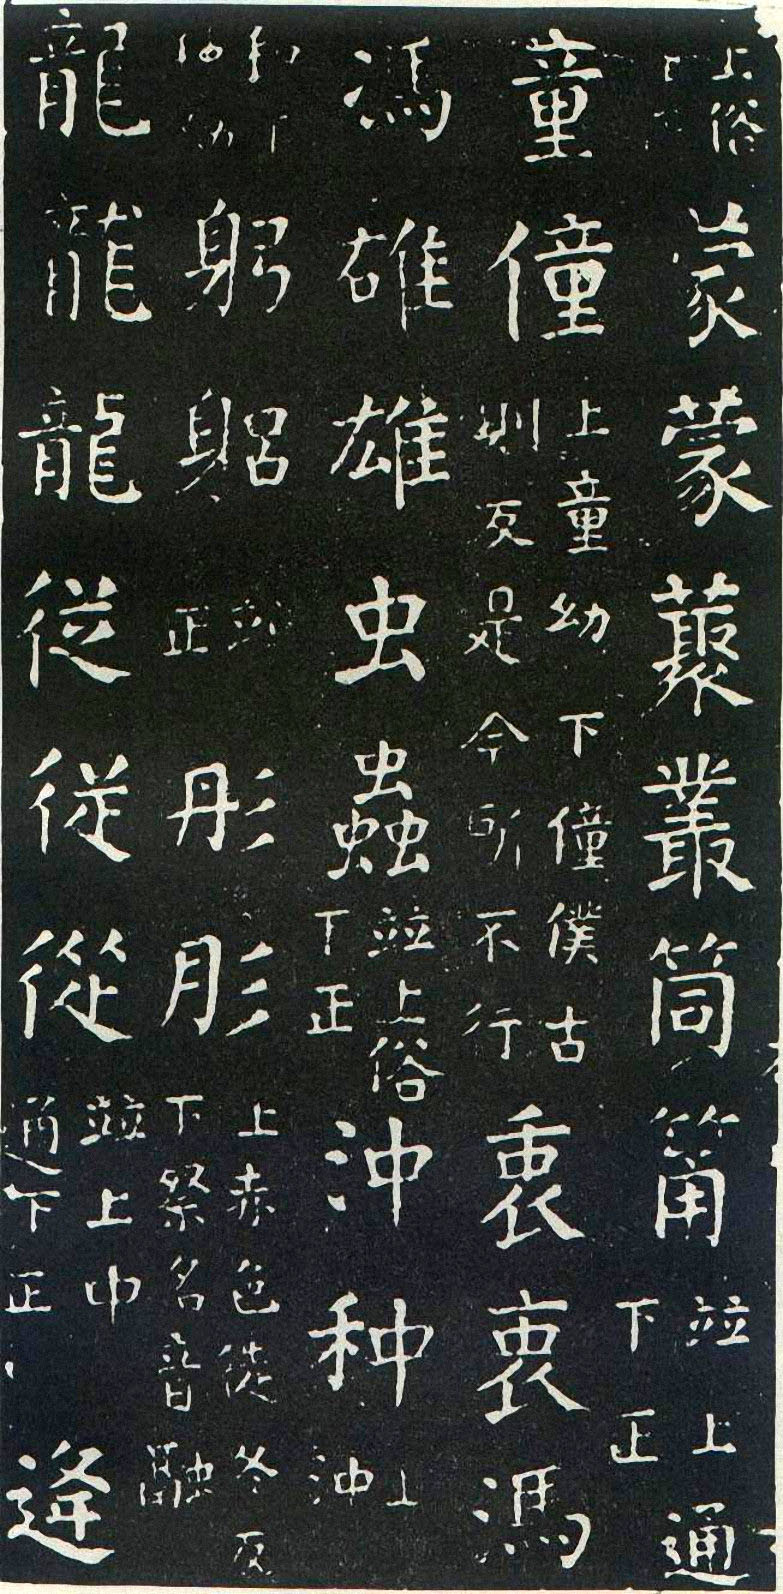 上俗下正蒙蒙藂叢筒筩並上通下正
童僮上童幼下僮僕古則反是今所不行衷衷馮
馮雄雄虫蟲並上俗下正沖种上沖
和下种幼躬躳並正彤肜上赤色徒冬反下祭名音融
龍龍龍従従從並上中通下正逢